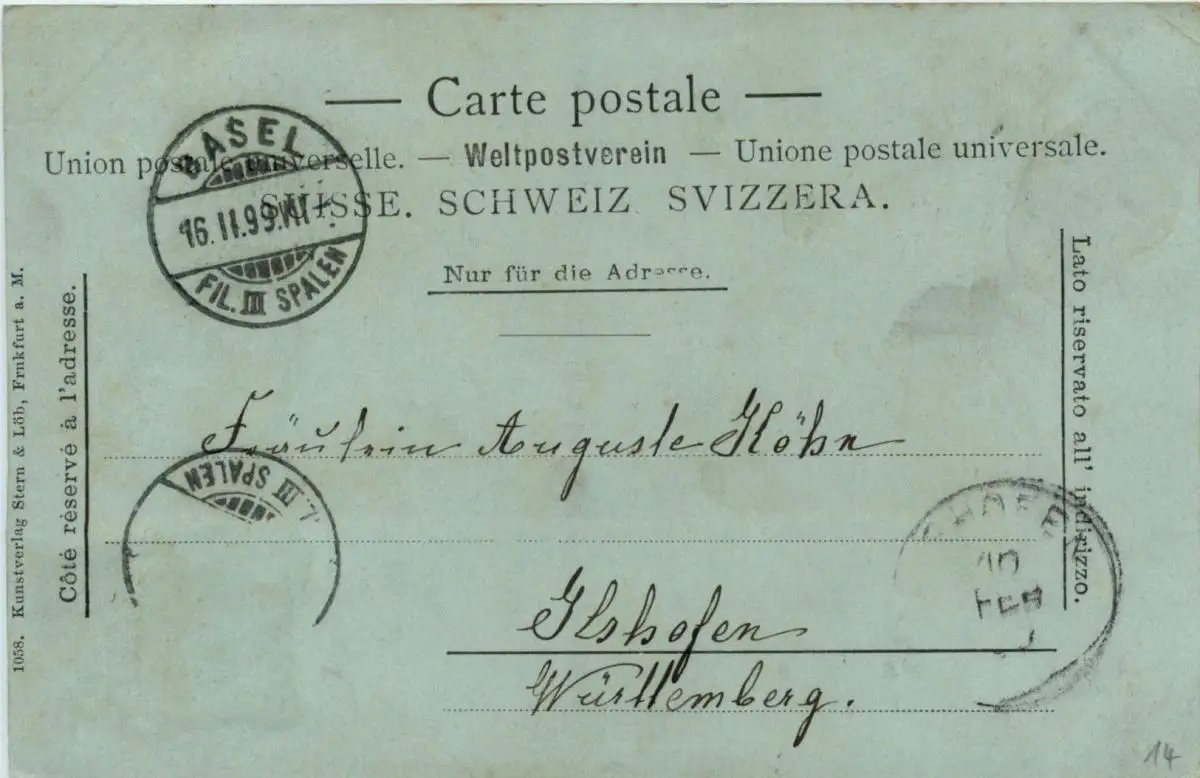 Carte postale
Union postale universelle. — Weltpostverein — Unione postale universale.
SUISSE. SCHWEIZ. SVIZZERA.
Nur für die Adresse.
BASEL
16.II.99.VII
FIL. III SPALEN
Côté réservé à l'adresse.
1058. Kunstverlag Stern & Löb, Frnkfurt a. M.
Lato riservato all' indirizzo.
Fräulein Auguste Köhn
L. III SPALEN
SHOFEN
Ilshofen
Württemberg.
14